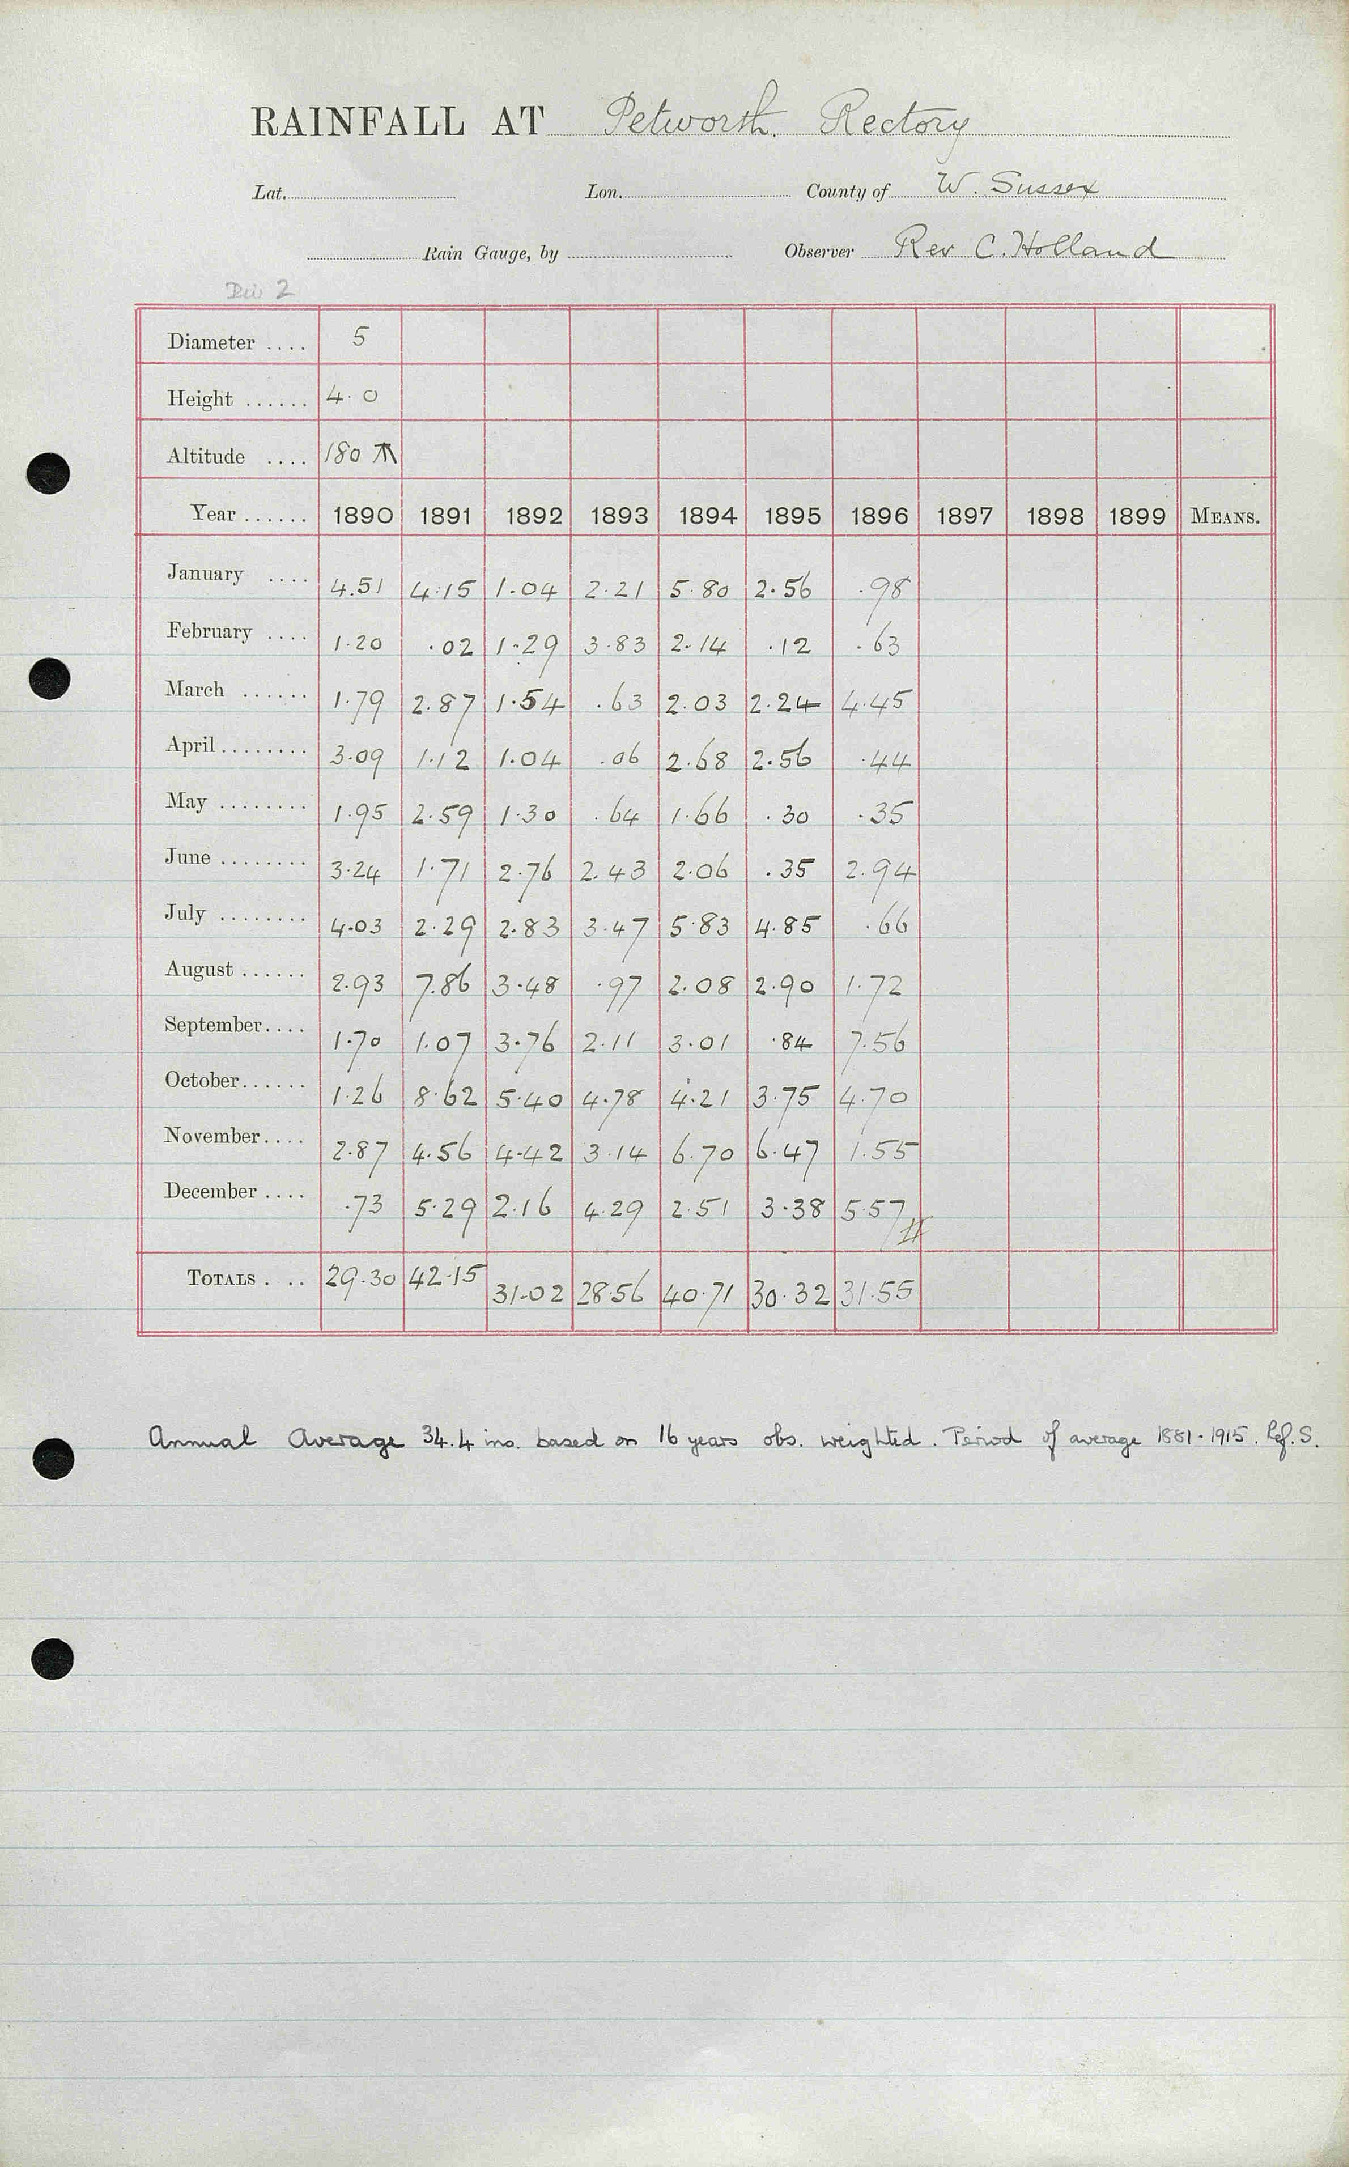 RAINFALL AT Petworth. Rectory
Lat. Lon. County of W. Sussex
Rain Gauge, by Observer Rev C. Holland
Div 2
Diameter .... 5
Height ...... 4.0
Altitude .... 180
Year ...... 1890 1891 1892 1893 1894 1895 1896 1897 1898 1899 MEANS.
January .... 4.51 4.15 1.04 2.21 5.80 2.56 .98
February .... 1.20 .02 1.29 3.83 2.14 .12 .63
March ...... 1.79 2.87 1.54 .63 2.03 2.24 4.45
April ........ 3.09 1.12 1.04 .06 2.68 2.56 .44
May ........ 1.95 2.59 1.30 .64 1.66 .30 .35
June ........ 3.24 1.71 2.76 2.43 2.06 .35 2.94
July ........ 4.03 2.29 2.83 3.47 5.83 4.85 .66
August ...... 2.93 7.86 3.48 .97 2.08 2.90 1.72
September .... 1.70 1.07 3.76 2.11 3.01 .84 7.56
October ...... 1.26 8.62 5.40 4.78 4.21 3.75 4.70
November .... 2.87 4.56 4.42 3.14 6.70 6.47 1.55
December .... .73 5.29 2.16 4.29 2.51 3.38 5.57
TOTALS . .. 29.30 42.15 31.02 28.56 40.71 30.32 31.55
Annual Average 34.4 ins. based on 16 years obs. weighted. Period of average 1881-1915. Ref. S.